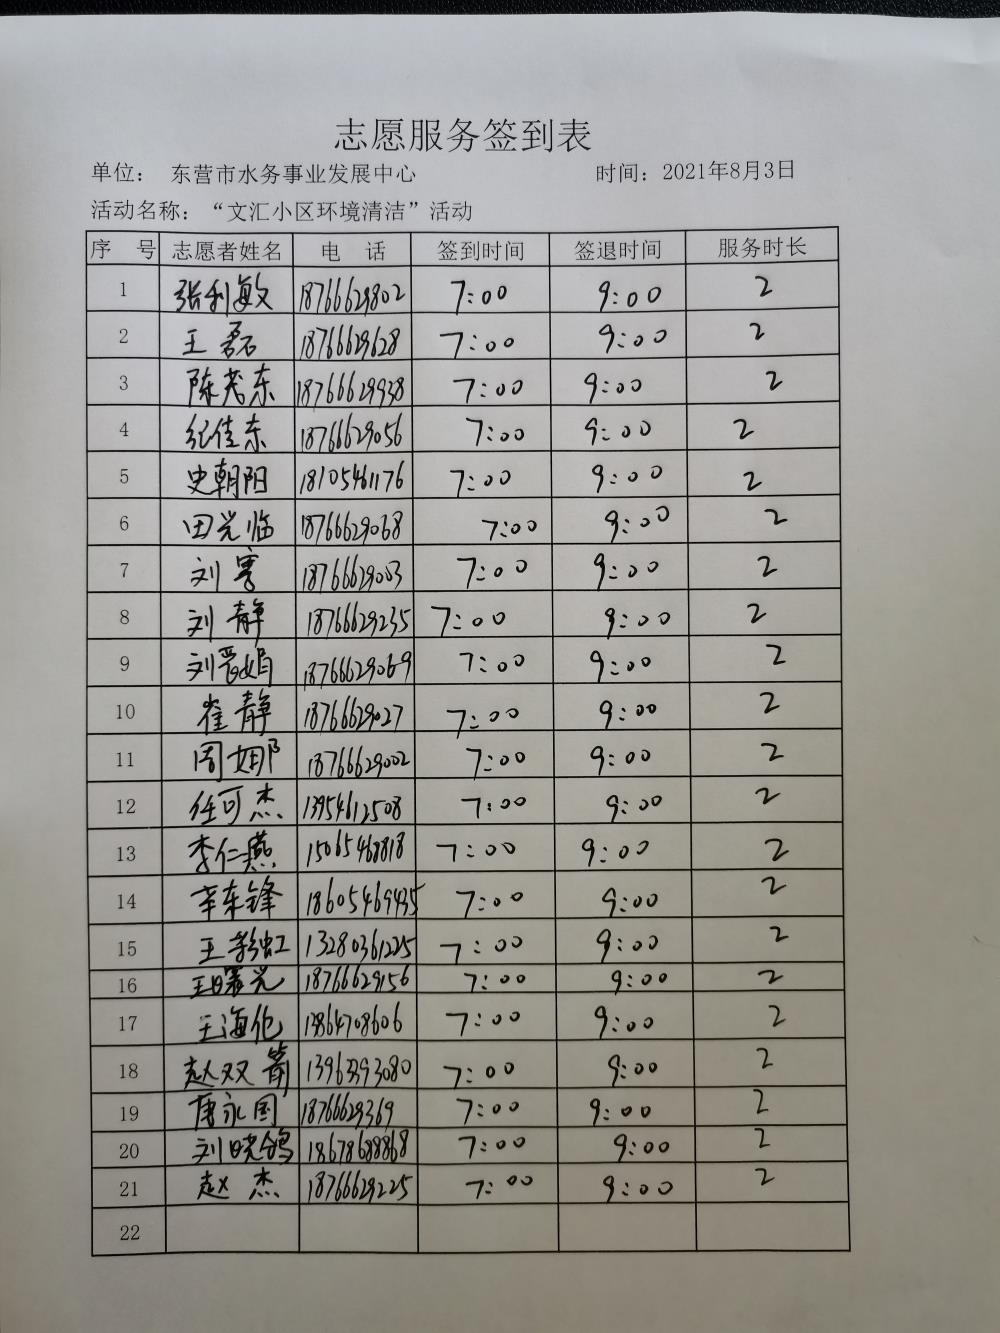 志愿服务签到表
单位： 东营市水务事业发展中心 时间：2021年8月3日
活动名称：“文汇小区环境清洁”活动
序 号 志愿者姓名 电 话 签到时间 签退时间 服务时长
1 张利敏 18766629802 7:00 9:00 2
2 王磊 18766629628 7:00 9:00 2
3 陈茂东 18766629938 7:00 9:00 2
4 纪佳东 18766629056 7:00 9:00 2
5 史朝阳 18105461176 7:00 9:00 2
6 田光临 18766629068 7:00 9:00 2
7 刘 18766629003 7:00 9:00 2
8 刘静 18766629235 7:00 9:00 2
9 刘晋娟 18766629069 7:00 9:00 2
10 崔静 18766629027 7:00 9:00 2
11 周娜 18766629002 7:00 9:00 2
12 任可杰 13954612508 7:00 9:00 2
13 李仁燕 15065468818 7:00 9:00 2
14 辛东锋 18605469435 7:00 9:00 2
15 王彩虹 13280361225 7:00 9:00 2
16 王曙光 18766629156 7:00 9:00 2
17 王海伦 13864708606 7:00 9:00 2
18 赵双箭 13963393080 7:00 9:00 2
19 唐永国 18766629369 7:00 9:00 2
20 刘晓鸽 18678688868 7:00 9:00 2
21 赵杰 18766629225 7:00 9:00 2
22